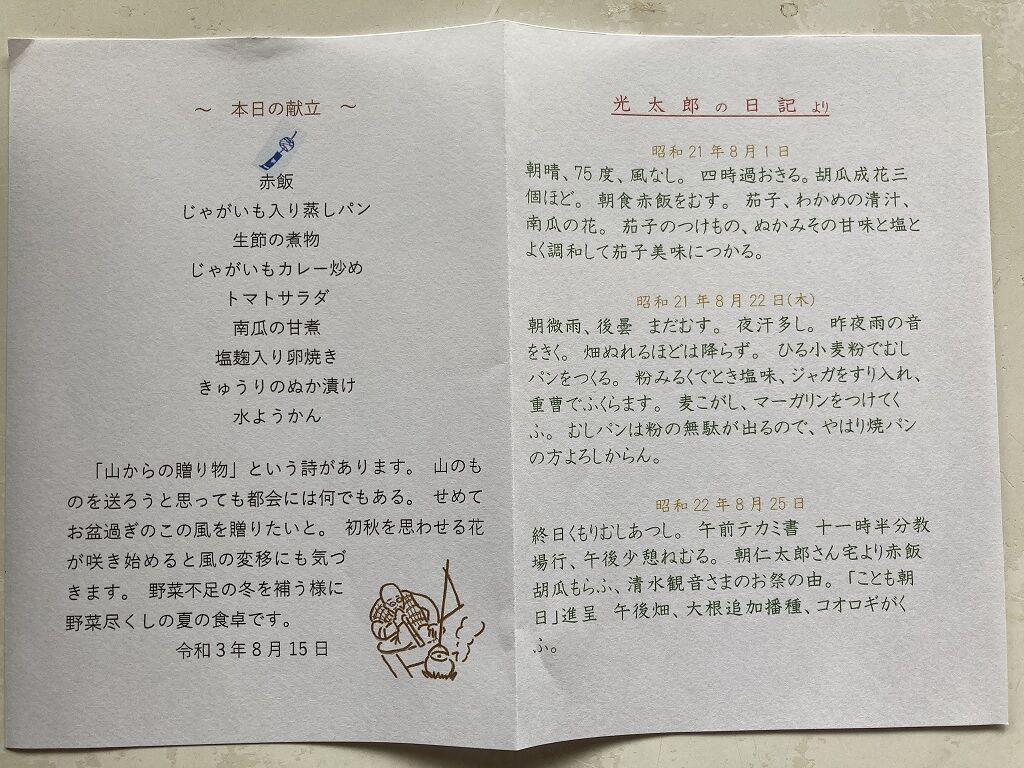 ～ 本日の献立 ～
赤飯
じゃがいも入り蒸しパン
生節の煮物
じゃがいもカレー炒め
トマトサラダ
南瓜の甘煮
塩麹入り卵焼き
きゅうりのぬか漬け
水ようかん
「山からの贈り物」という詩があります。 山のも
のを送ろうと思っても都会には何でもある。 せめて
お盆過ぎのこの風を贈りたいと。 初秋を思わせる花
が咲き始めると風の変移にも気づ
きます。 野菜不足の冬を補う様に
野菜尽くしの夏の食卓です。
令和3年8月15日
光太郎の日記より
昭和21年8月1日
朝晴、75度、風なし。 四時過おきる。胡瓜成花三
個ほど。 朝食赤飯をむす。 茄子、わかめの清汁、
南瓜の花。 茄子のつけもの、ぬかみその甘味と塩と
よく調和して茄子美味につかる。
昭和21年8月22日(木)
朝微雨、後曇 まだむす。 夜汗多し。 昨夜雨の音
をきく。 畑ぬれるほどは降らず。 ひる小麦粉でむし
パンをつくる。 粉みるくでとき塩味、ジャガをすり入れ、
重曹でふくらます。 麦こがし、マーガリンをつけてく
ふ。 むしパンは粉の無駄が出るので、やはり焼パン
の方よろしからん。
昭和22年8月25日
終日くもりむしあつし。 午前テカミ書 十一時半分教
場行、午後少憩ねむる。 朝仁太郎さん宅より赤飯
胡瓜もらふ、清水観音さまのお祭の由。「こども朝
日」進呈 午後畑、大根追加播種、コオロギがく
ふ。